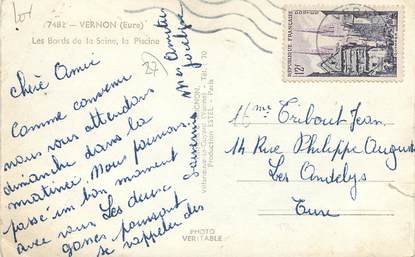 7482 - VERNON (Eure)
Les Bords de la Seine, la Piscine
27
Chère Amie
Comme convenu
nous vous attendons
dimanche dans la
matinée. Nous pourrons
passé un bon moment
avec vous Les deux
gosses pourront
se rappeler des
souvenirs Mes amitiés
Jocelyne
Production ESTEL - Paris
PHOTO
VERITABLE
RÉPUBLIQUE FRANÇAISE
12F
Mme Tribout Jean
14 Rue Philippe Auguste
Les Andelys
Eure